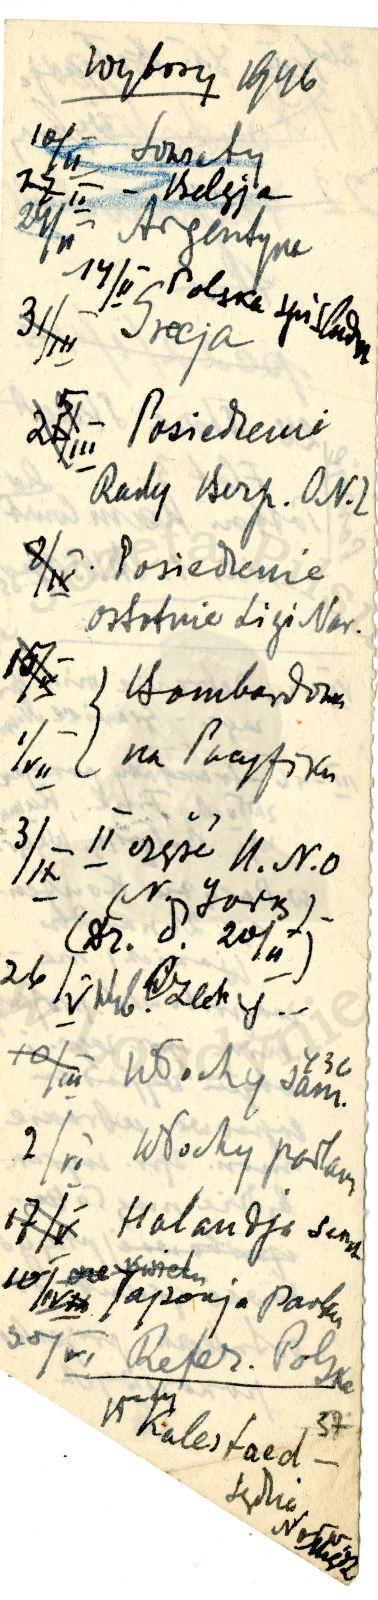 Wybory 1946
10/II Sowiety
17/II - Belgja
24/II Argentyna
14/II Polska spis ludn
31/III Grecja
III Posiedzenie
Rady Bezp. O.N.Z
8/IV. Posiedzenie
ostatnie Ligi Nar.
15/V } Bombardowa
1/VII } na Pacyfiku
3/IX II część U.N.O
(N. York)-
(Dz. P. 20/II)
26/V Wyb. Czechy --
10/III Włochy sam.
2/VI Włochy parlam
17/V Holandja
Japonja Parlam
30/VI Refer. Polska
37